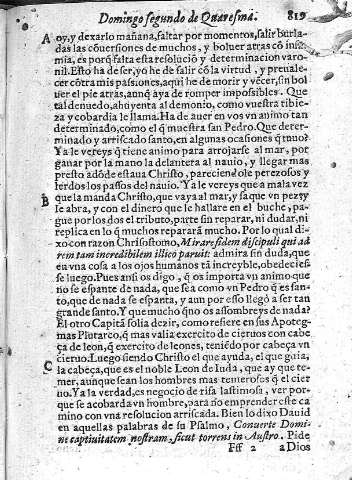 Domingo segundo de Quaresma. 819
A oy, y dexarlo mañana, saltar por momentos, salir burla-
das las cõuersiones de muchos, y boluer atras cõ infa-
mia, es porq̃ falta esta resoluciõ y determinacion varo-
nil. Esto ha de ser, yo hé de salir cõ la virtud, y preuale-
cer cõtra mis passiones, aqui he de morir y vẽcer, sin bol
uer el pie atras, aunq̃ aya de romper impossibles. Que
tal denuedo, ahuyenta al demonio, como vuestra tibie-
za y cobardia le llama. Ha de auer en vos vn animo tan
determinado, como el q̃ muestra san Pedro. Que deter-
minado y arriscado santo, en algunas ocasiones q̃ tuuo?
Ya le vereys q̃ tiene animo para arrojarse al mar, por
ganar por la mano la delantera al nauio, y llegar mas
presto adõde estaua Christo, pareciendole perezosos y
lerdos los passos del nauio. Y a le vereys que a mala vez
B que la manda Christo, que vaya al mar, y saque vn pez y
le abra, y con el dinero que le hallare en el buche, pa-
gue por los dos el tributo, parte sin reparar, ni dudar, ni
replica en lo q̃ muchos repararã mucho. Por lo qual di-
xo con razon Chrisostomo, Mirare fidem discipuli qui ad
rem tam incredibilem illico paruit: admira sin duda, que
en vna cosa a los ojos humanos tã increyble, obedeciес
se luego. Pues ansi os digo, q̃ os importa vn animo que
no se espante de nada, que sea como vn Pedro q̃ es san-
to, que de nada se espanta, y aun por esso llegó a ser tan
grande santo. Y que mucho q̃ no os assombreys de nada?
El otro Capitã solia dezir, como refiere en sus Apoteg-
mas Plutarco, q̃ mas valia exercito de cieruos con cabe
ça de leon, q̃ exercito de leones, teniẽdo por cabeça vn
cieruo. Luego siendo Christo el que ayuda, el que guia,
C la cabeça, que es el noble Leon de Iuda, que ay que te-
mer, aunque sean los hombres mas temerosos q̃ el cier
uo. Y a la verdad, es negocio de risa lastimosa, ver por-
que se acobarda vn hombre, para nò emprender este ca
mino con vna resolucion arriscada. Bien lo dixo Dauid
en aquellas palabras de su Psalmo, Conuerte Domi-
ne captiuitatem nostram, sicut torrens in Austro. Pide
Fff 2 a Dios